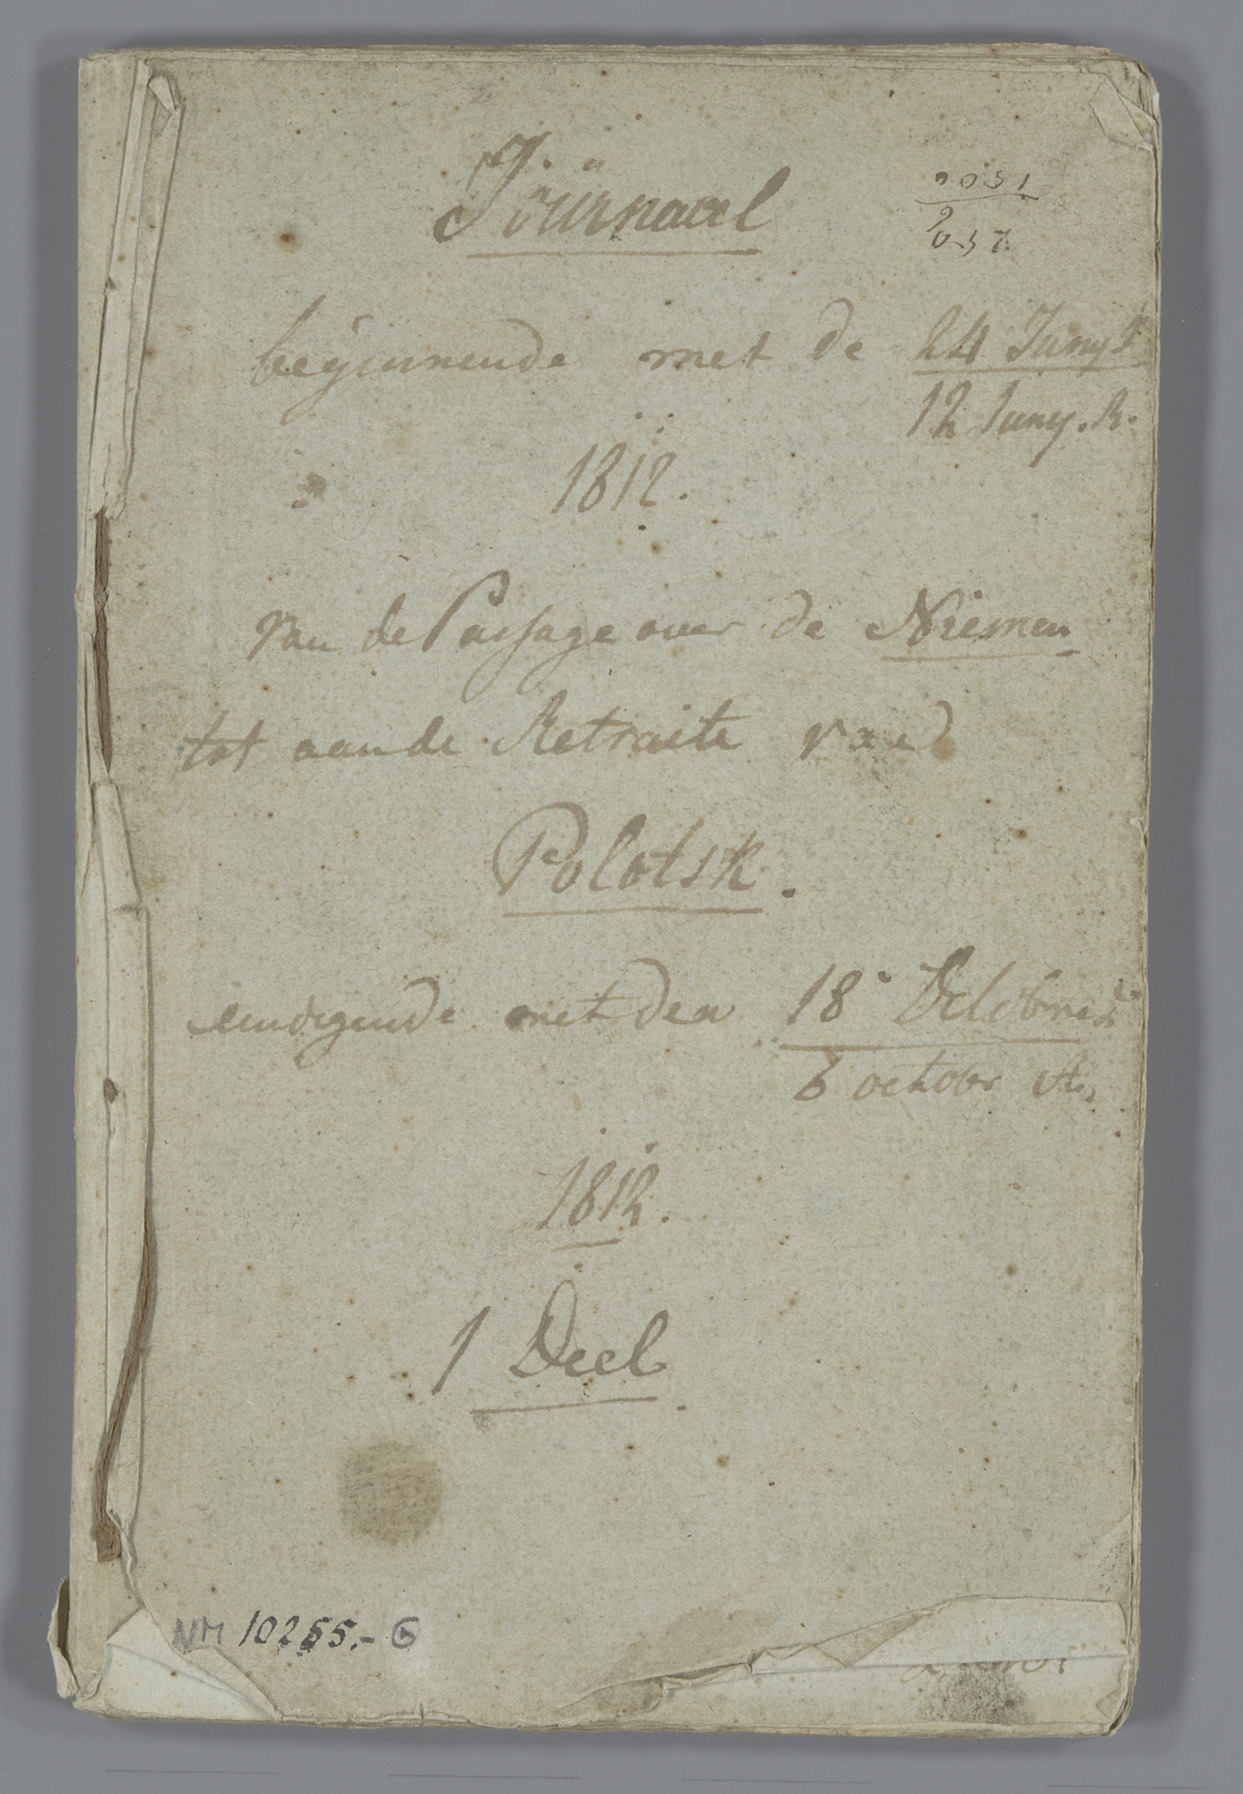 Journaal
2031
2037
beginnende met de 24 Juny
12 Juny. R.
1812.
van de Passage over de Niemen
tot aan de Retraite van
Polotsk.
eindigende met den 18 October
6 octobr
1812.
1 Deel
NM 10255.- G